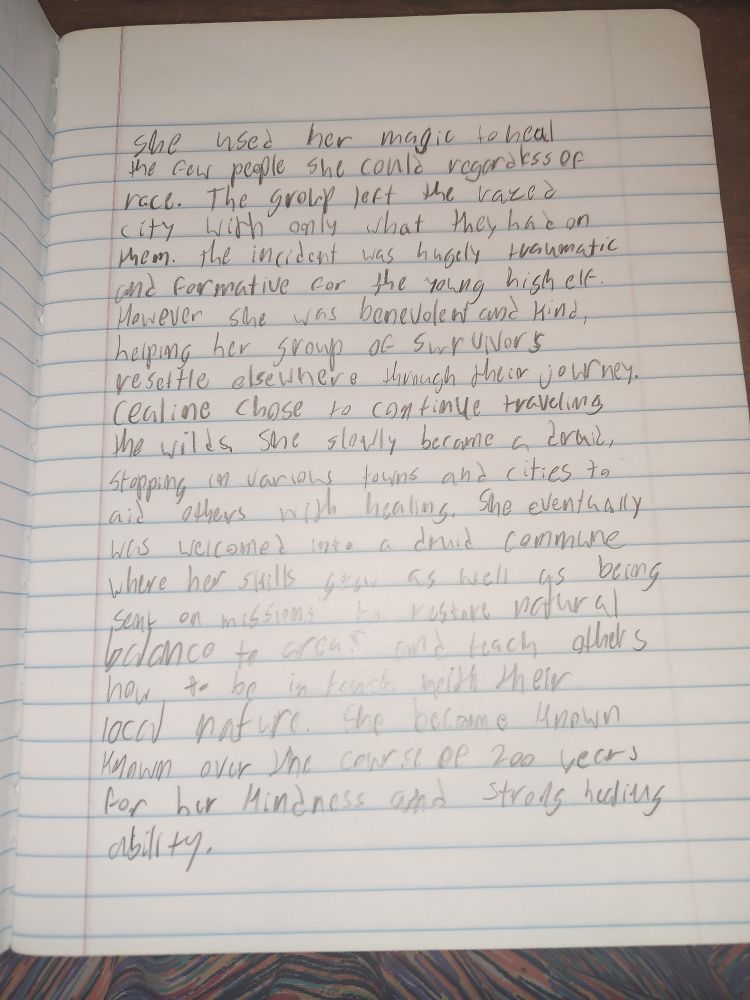 She used her magic to heal
the few people she could regardless of
race. The group left the razed
city with only what they had on
them. The incident was hugely traumatic
and formative for the young high elf.
However she was benevolent and kind,
helping her group of survivors
resettle elsewhere through their journey.
Cealine chose to continue traveling
the wilds. She slowly became a druid,
stopping in various towns and cities to
aid others with healing. She eventually
was welcomed into a druid commune
where her skills grew as well as being
sent on missions to restore natural
balance to areas and teach others
how to be in touch with their
local nature. She became known
known over the course of 200 years
for her kindness and strong healing
ability.